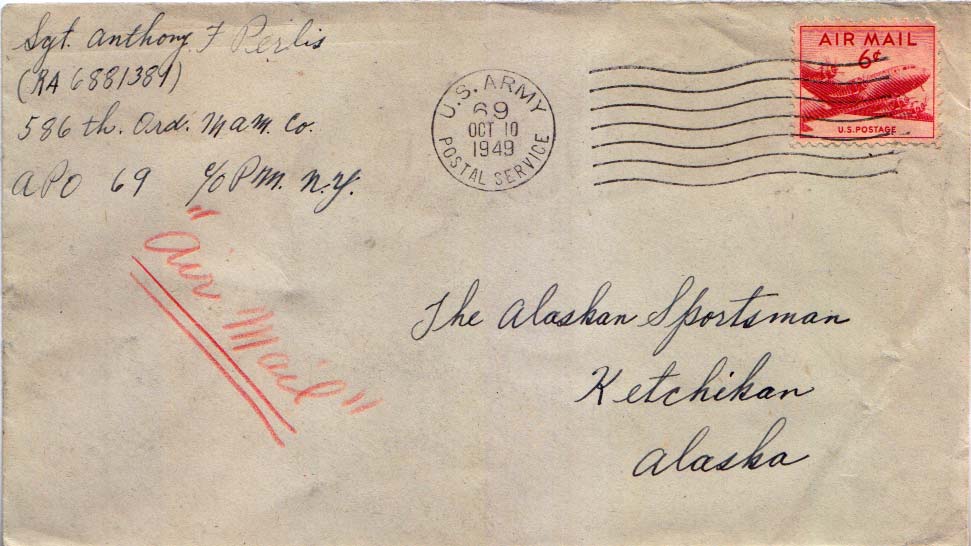 Sgt. Anthony F Perlis
(RA 6881389)
586 th. Ord. MAM. Co.
APO 69 c/o PM. N.Y.
U.S. ARMY
69
OCT 10
1949
POSTAL SERVICE
AIR MAIL
6¢
U.S. POSTAGE
"Air Mail"
The Alaskan Sportsman
Ketchikan
Alaska